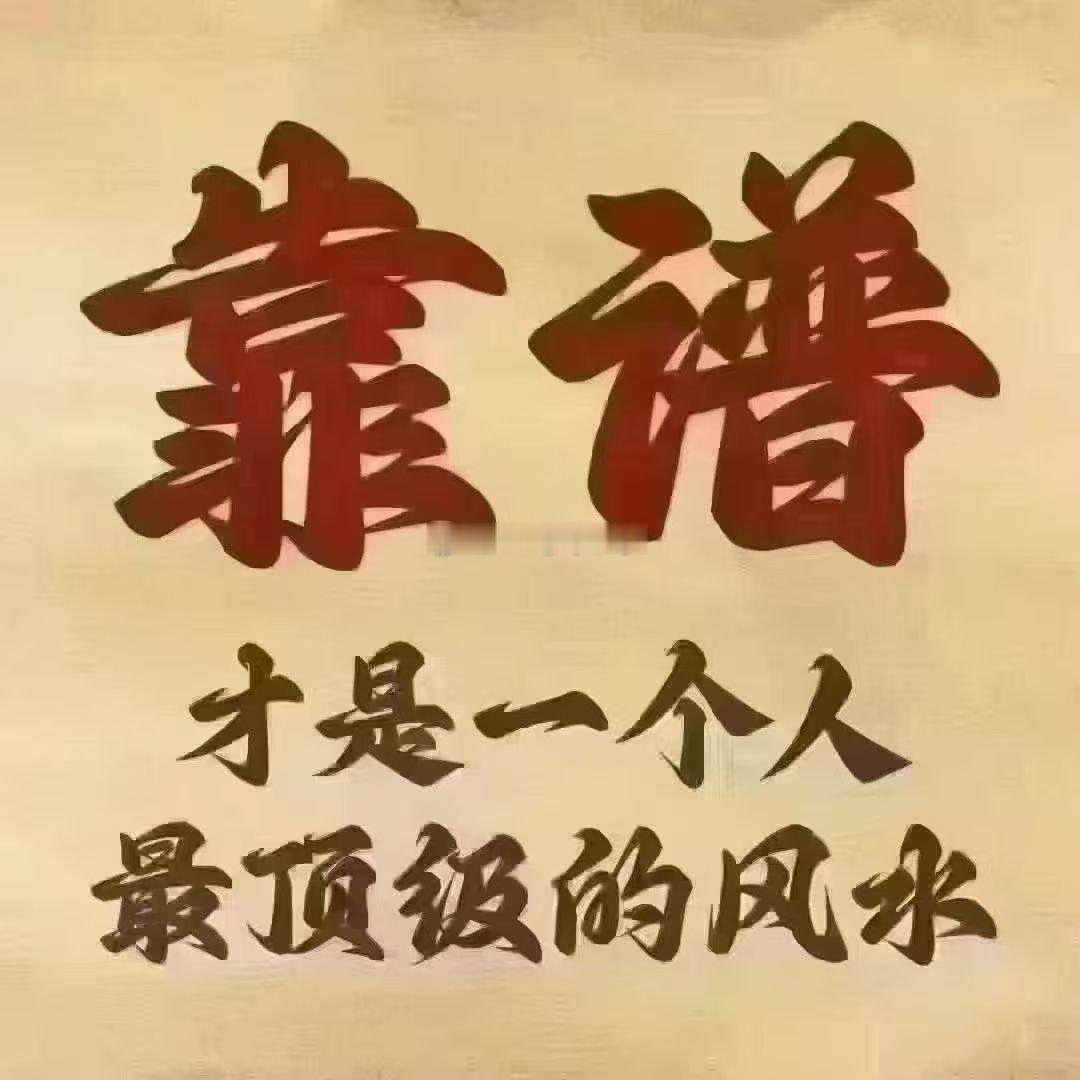 靠谱
才是一个人
最顶级的风水